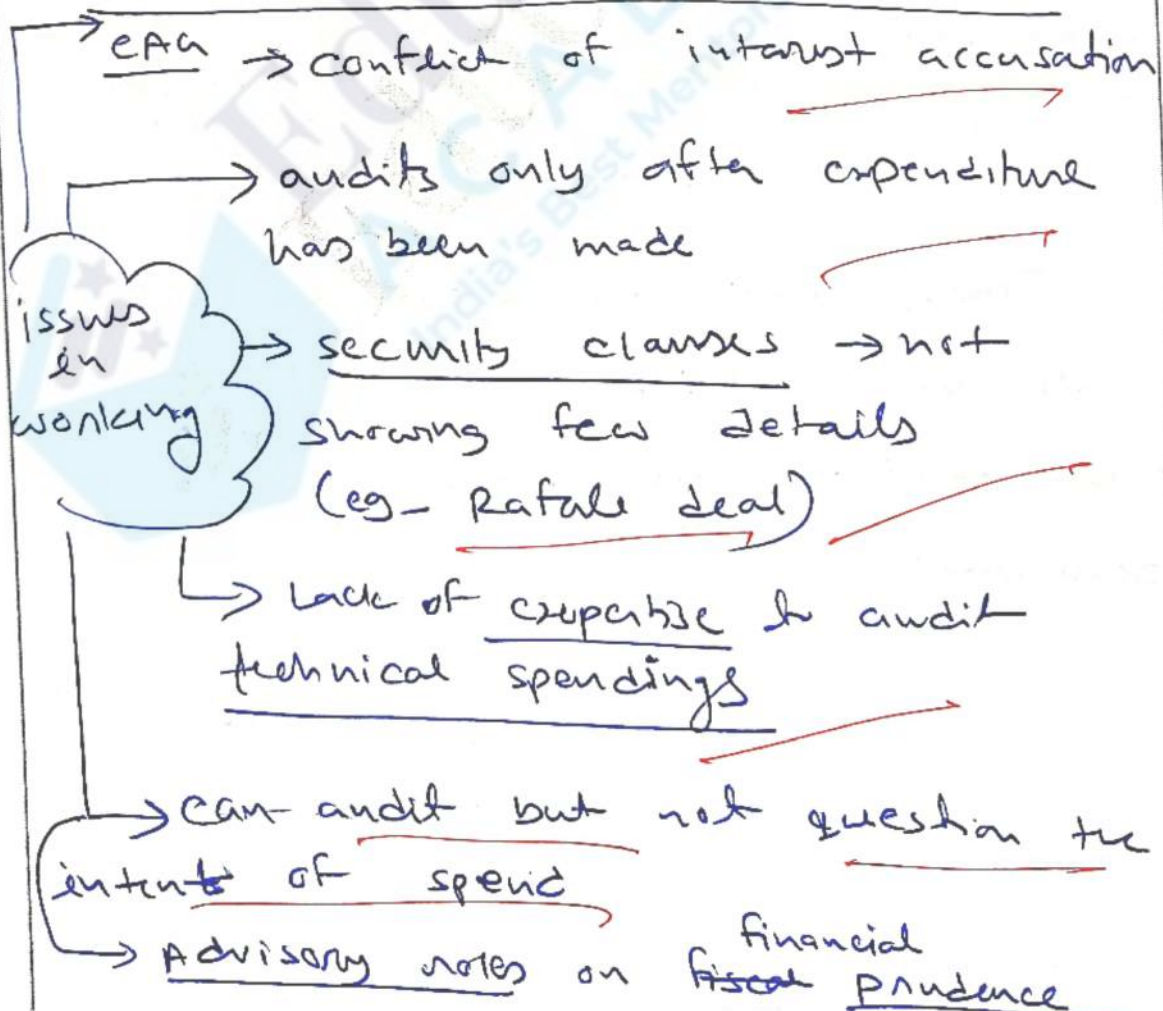 CAG → conflict of interest accusation
→ audits only after expenditure
has been made
issues
in
working
→ security clauses → not
sharing few details
(eg- Rafale deal)
→ Lack of expertise to audit
technical spendings
→ can audit but not question the
intent of spend
→ Advisory roles on fiscal financial prudence
India's Best Mentor